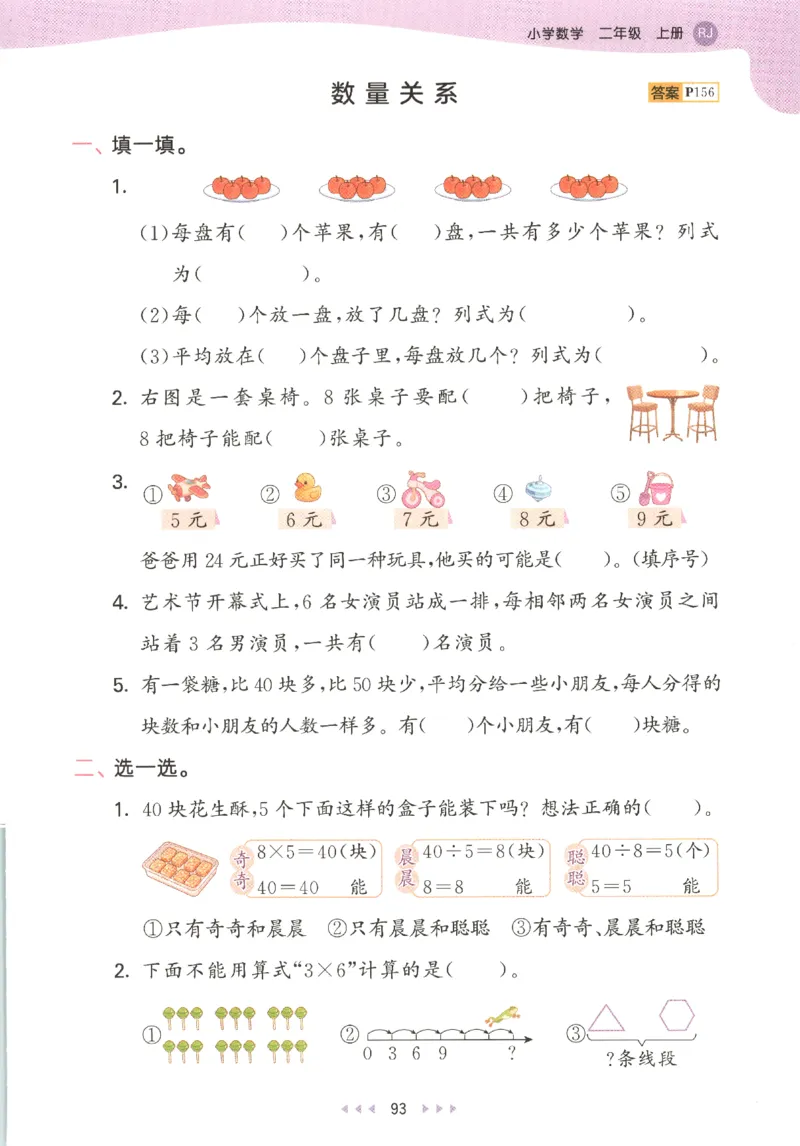 小学数学 二年级 上册 RJ
数量关系
答案 P156
一、填一填。
1.
(1)每盘有(  )个苹果,有(  )盘,一共有多少个苹果? 列式
为(  )。
(2)每(  )个放一盘,放了几盘? 列式为(  )。
(3)平均放在(  )个盘子里,每盘放几个? 列式为(  )。
2. 右图是一套桌椅。8 张桌子要配(  )把椅子,
8 把椅子能配(  )张桌子。
3.
① ② ③ ④ ⑤
5 元 6 元 7 元 8 元 9 元
爸爸用 24 元正好买了同一种玩具,他买的可能是(  )。(填序号)
4. 艺术节开幕式上,6 名女演员站成一排,每相邻两名女演员之间
站着 3 名男演员,一共有(  )名演员。
5. 有一袋糖,比 40 块多,比 50 块少,平均分给一些小朋友,每人分得的
块数和小朋友的人数一样多。有(  )个小朋友,有(  )块糖。
二、选一选。
1. 40 块花生酥,5 个下面这样的盒子能装下吗? 想法正确的(  )。
奇奇 8×5=40(块) 晨晨 40÷5=8(块) 聪聪 40÷8=5(个)
40=40 能 8=8 能 5=5 能
①只有奇奇和晨晨 ②只有晨晨和聪聪 ③有奇奇、晨晨和聪聪
2. 下面不能用算式“3×6”计算的是(  )。
① ② ③
0 3 6 9 ?
?条线段
93